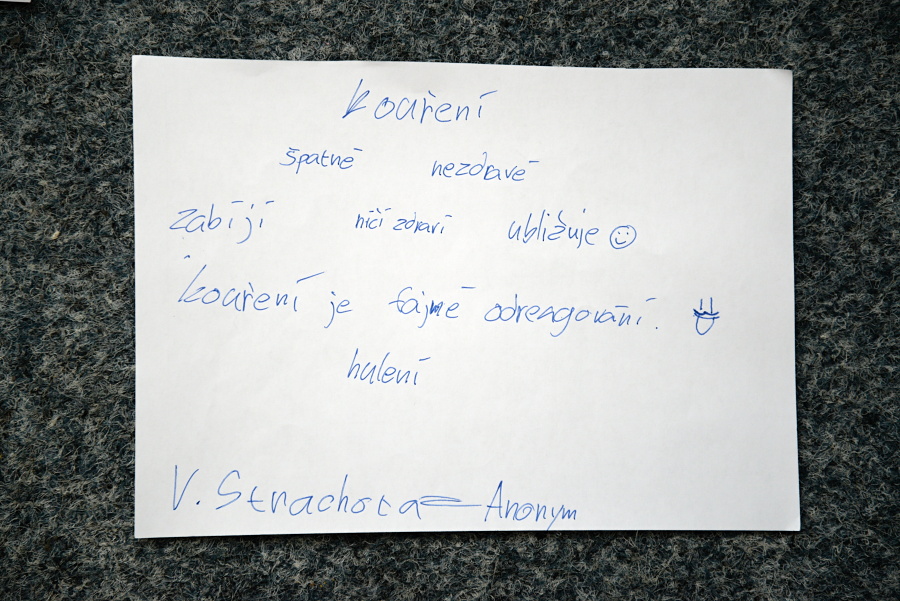 kouření
špatné nezdravé
zabíjí ničí zdraví ubližuje
kouření je fajmé odreagování.
hulení
V. Strachota = Anonym